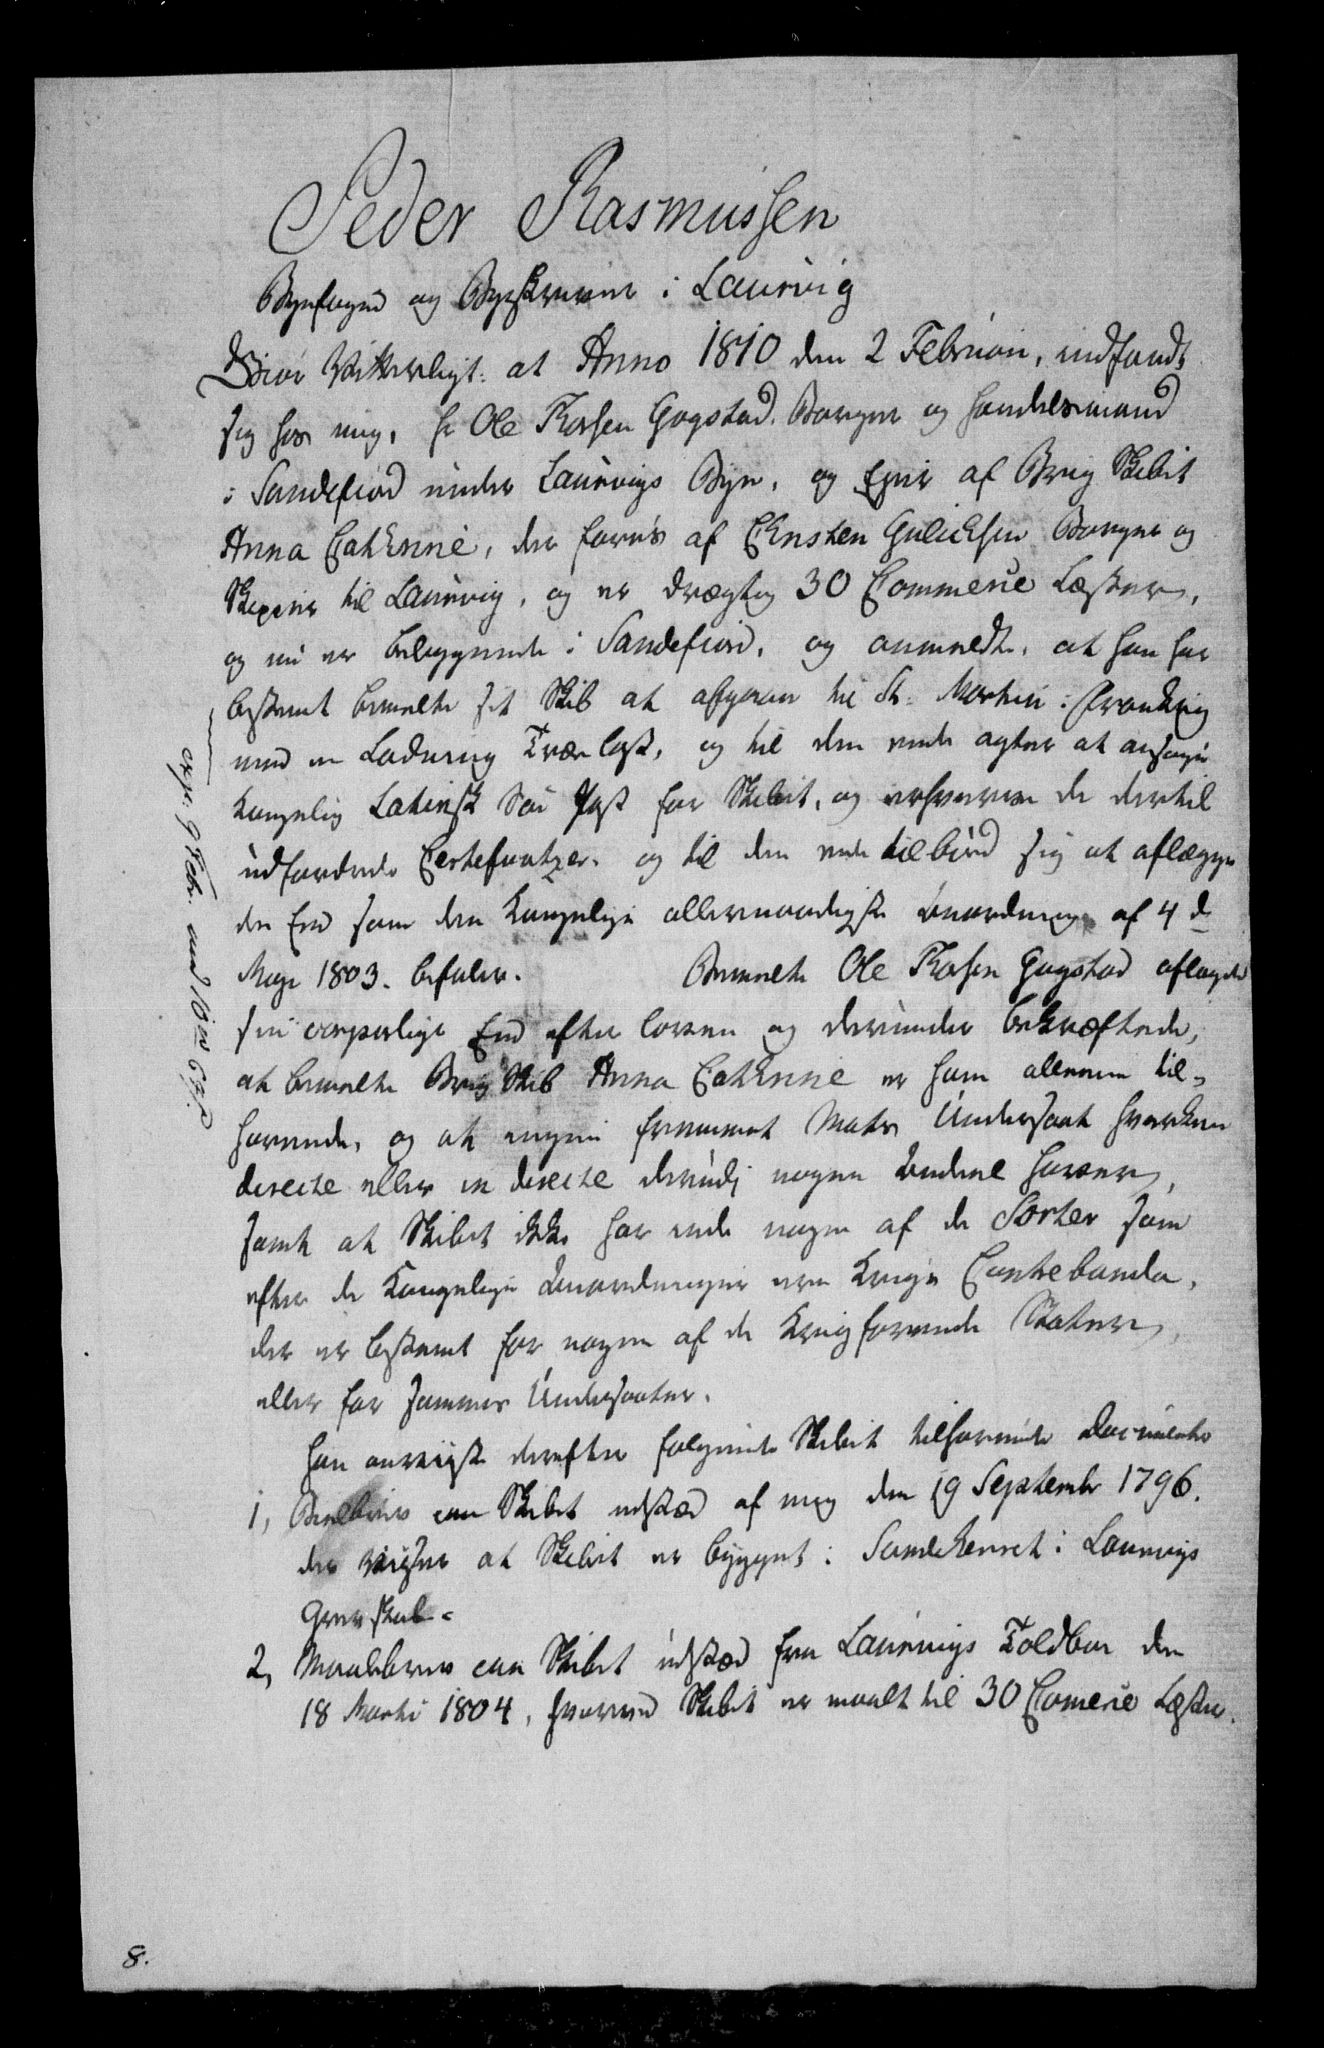 Peder Rasmussen
Byefoged og Byeskriver i Laurvig
Giør Vitterligt: at Anno 1810 den 2 Februari, indfandt
sig hos mig, Hr Ole Thorsen Gogstad. Borger og Handelsmand
i Sandefiord under Laurvigs Bye, og Eyer af Brig Skibet
Anna Cathrine, der føres af Christen Gulichsen Borger og
Skipper til Laurvig, og er drægtig 30 Commerce Læster,
og nu er beliggende i Sandefiord, og anmeldte, at han har
bestemt bemelte sit Skib at afgaae til St. Martin i Frankrig
med en Ladning Trælast, og til den ende agter at ansøge
Kongelig Latinsk Søe Pass for Skibet, og erhverve de dertil
udfordrede Certeficatzer. og til den ende tilbød sig at aflægge
den Eed som den Kongelige allernaadigste Anordning af 4 d
Maye 1803. befaler. Bemelte Ole Thorsen Gogstad aflagde
sin corperlige Eed efter loven og derunder bekræftede,
at bemelte Brig Skib Anna Cathrine er ham alleene til-
hørende, og at ingen fremmet Magts Undersaat hverken
directe eller in directe derudj nogen Andeel haver,
samt at Skibet ikke har inde nogen af de Sorter som
efter de Kongelige Anordninger ere Krigs Contrebande,
der er bestemt for nogen af de Krigførende Magter,
eller for sammes Undersaatter.
Han anviiste derefter følgende Skibet tilhørende Documenter
1, Beelbrev paa Skibet udstæd af mig den 19 September 1796.
der viiser at Skibet er bygget i Sandeherret i Laurvigs
Grevskab.
2, Maalebrev paa Skibet udstæd fra Laurvigs Toldboe den
18 Marti 1804, hvorved Skibet er maalt til 30 Comerce Læster.
exp. 9 Febr. med
8.